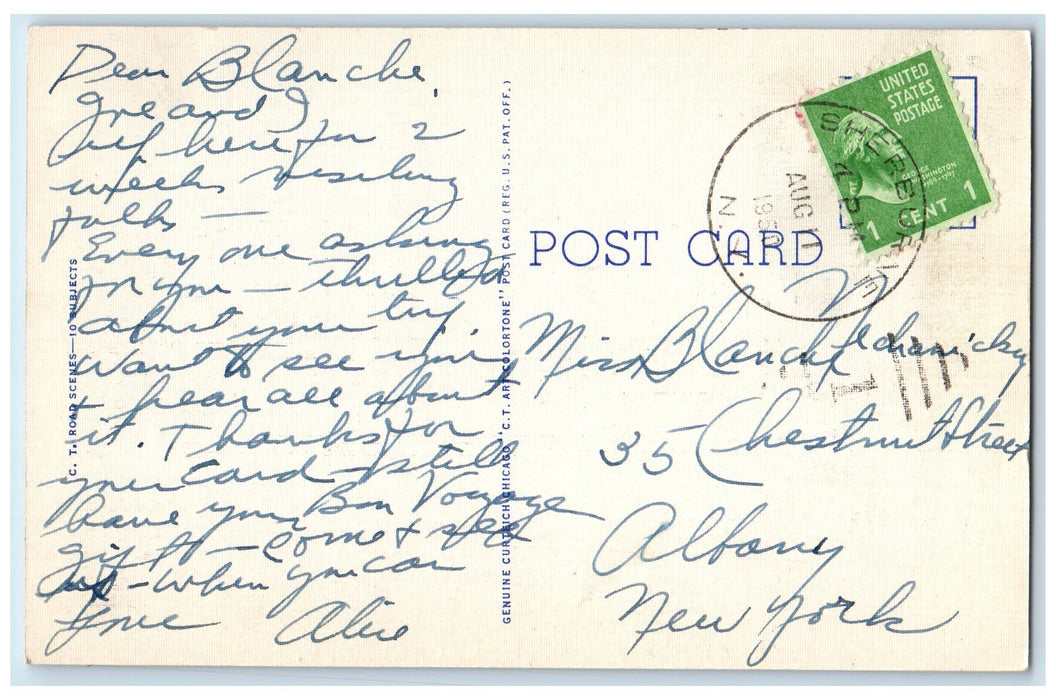 Dear Blanche,
and I
here for 2
weeks visiting
folks —
Every one asking
for you — thrilled
about your trip.
Want to see you
+ hear all about
it. Thanks for
your card — still
have your Bon Voyage
gift — come + see
us — when you can
Love Alice
C. T. ROAD SCENES—10 SUBJECTS
GENUINE CURTEICH-CHICAGO "C. T. ART-COLORTONE" POST CARD (REG. U. S. PAT. OFF.)
POST CARD
UNITED
STATES
POSTAGE
GEORGE
WASHINGTON
1789-1797
1 CENT 1
SHERBURNE
4 PM
AUG 11
1950
N. Y.
Miss Blanche
35 Chestnut Street
Albany
New York
1